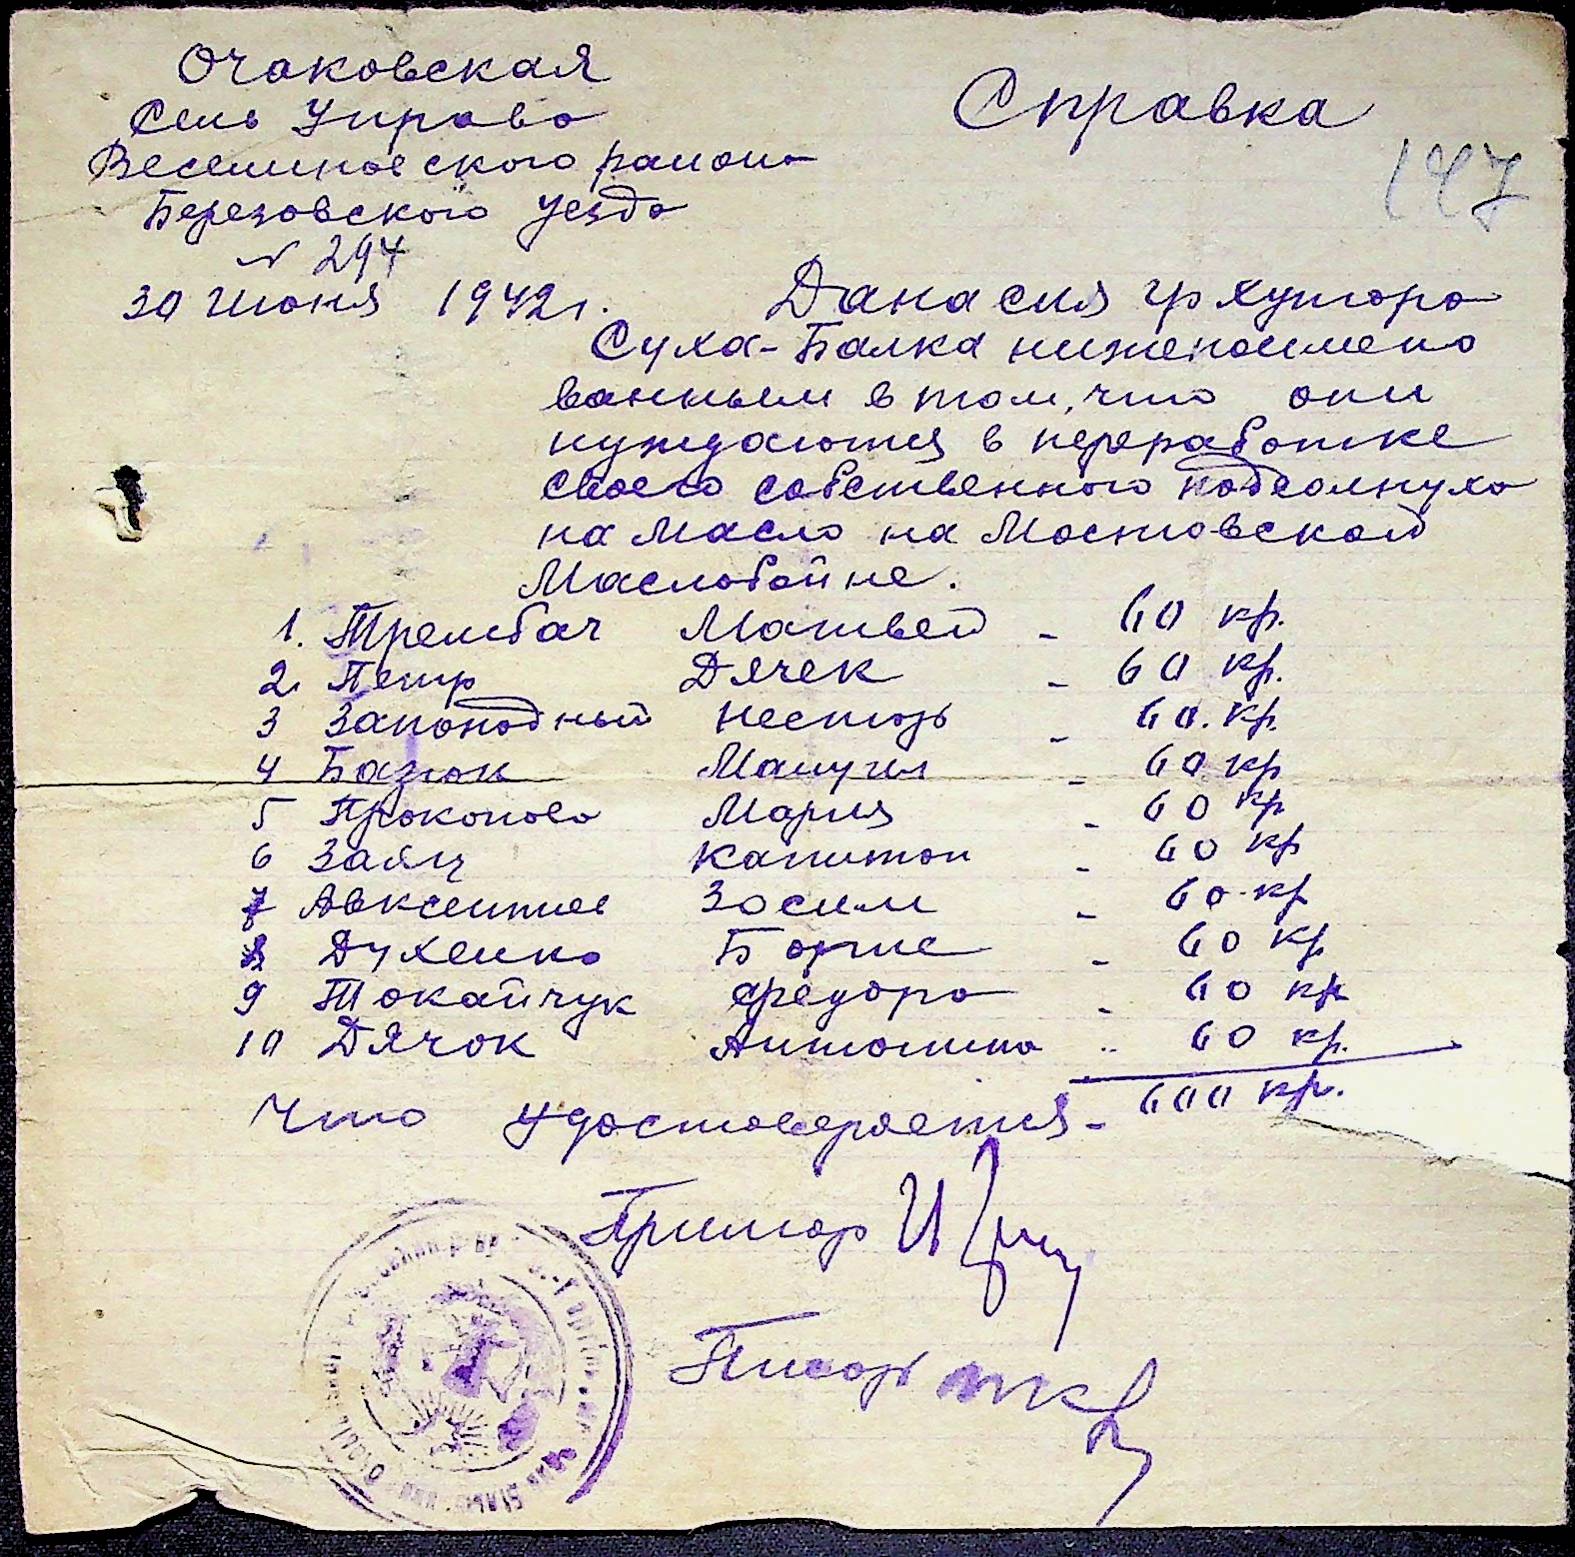 Очаковская
Сель Управа
Веселиновского района
Березовского уезда
N 294
30 Июня 1942 г.
Справка
147
Дана сия гр хутора
Суха-Балка нижепоимено
ванным в том, что они
нуждаются в переработке
своего собственного подсолнуха
на масло на Мостовской
Маслобойне.
1. Трембач Матвей - 60 кр.
2. Петр Дячек - 60 кр.
3 Заповодный Нестор - 60. кр.
4 Базюк Мануил - 60 кр
5 Прокопова Мария - 60 кр
6 Заяц Капитон - 60 кр
7 Авксентиев Зосим - 60 кр
8 Духенко Борис - 60 кр
9 Токайчук Федора - 60 кр
10 Дячок Антонина .. 60 кр.
600 кр.
Что удостоверяется -
Примар
Писарь